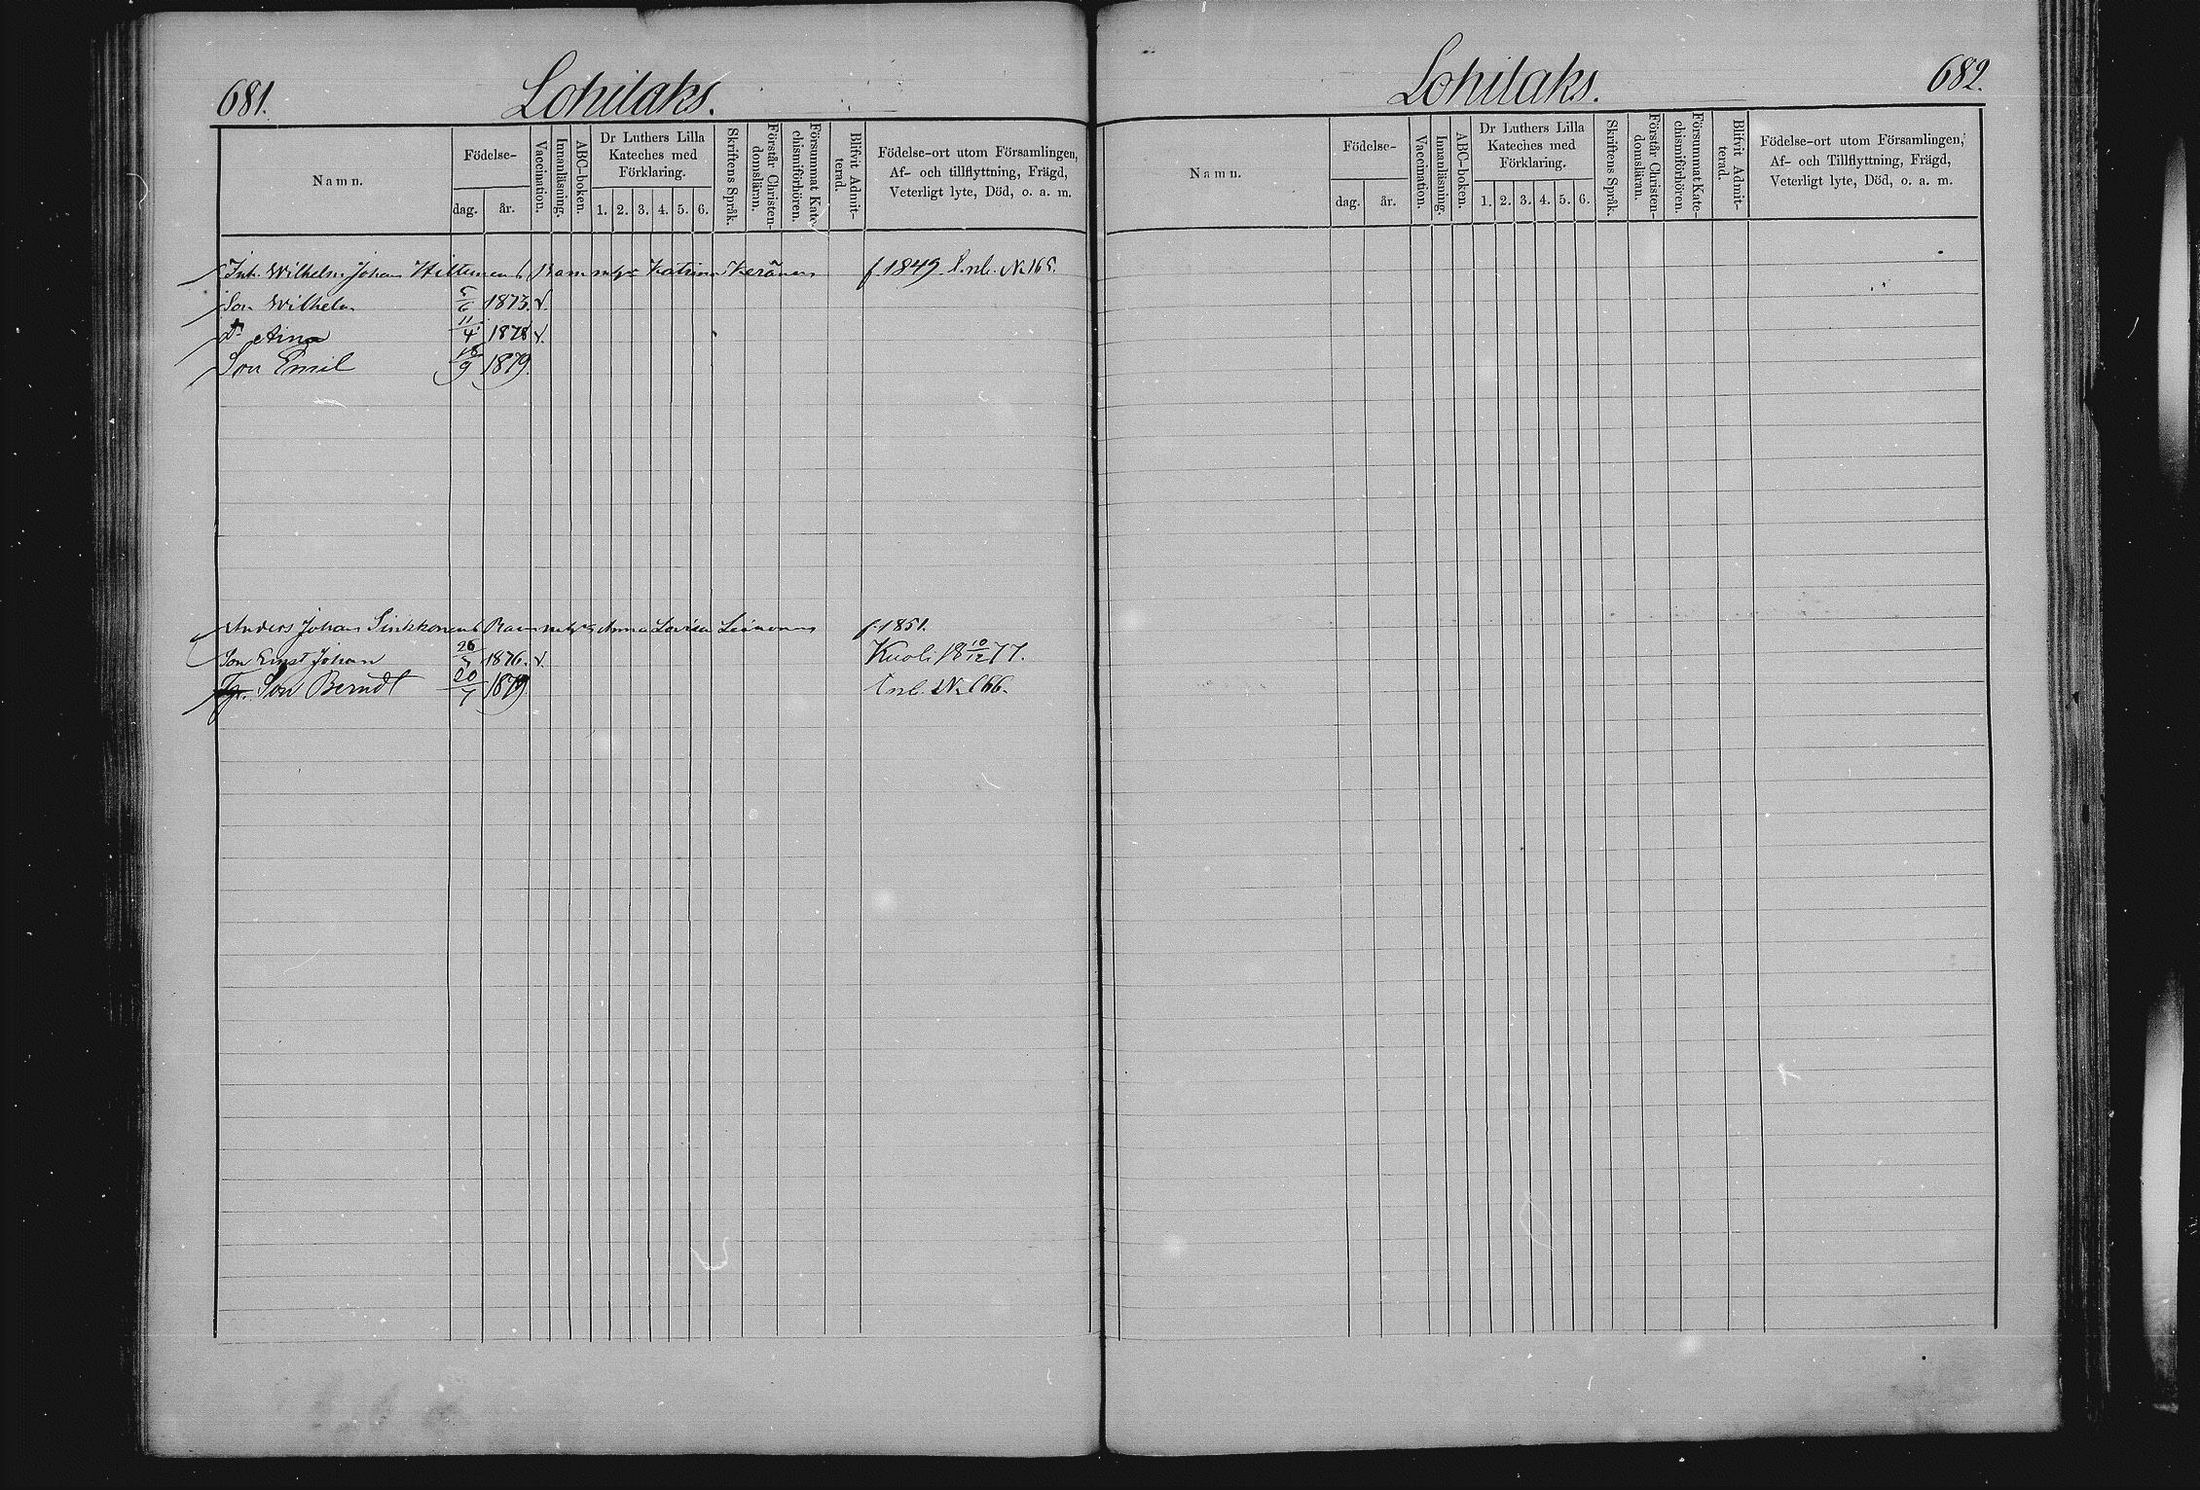 681.
Lohilaks.
Namn.
Födelse-
dag.
år.
Vaccination.
Innanläsning.
ABC-boken.
Dr Luthers Lilla
Kateches med
Förklaring.
1. 2. 3. 4. 5. 6.
Skriftens Språk.
Förstår Christen-
domsläran.
Försummat Kate-
chismiförhören.
Blifvit Admit-
terad.
Födelse-ort utom Församlingen,
Af- och tillflyttning, Frägd,
Veterligt lyte, Död, o. a. m.
Inh. Wilhelm Johan Hiltunen Barn m/h Katrina Keränen f 1849. l.nb. No 165.
Son Wilhelm 5/6 1873. v.
Dr Aina 11/4 1878 v.
Son Emil 18/9 1879.
Anders Johan Sinkkonens Barn Anna Lovisa f. 1851.
Son Ernst Johan 1876. v. Kuoli 18 10/12 77.
Son Berndt 20/7 1879 l.nb. No 166.
682.
Lohilaks.
Namn.
Födelse-
dag.
år.
Vaccination.
Innanläsning.
ABC-boken.
Dr Luthers Lilla
Kateches med
Förklaring.
1. 2. 3. 4. 5. 6.
Skriftens Språk.
Förstår Christen-
domsläran.
Försummat Kate-
chismiförhören.
Blifvit Admit-
terad.
Födelse-ort utom Församlingen,
Af- och Tillflyttning, Frägd,
Veterligt lyte, Död, o. a. m.